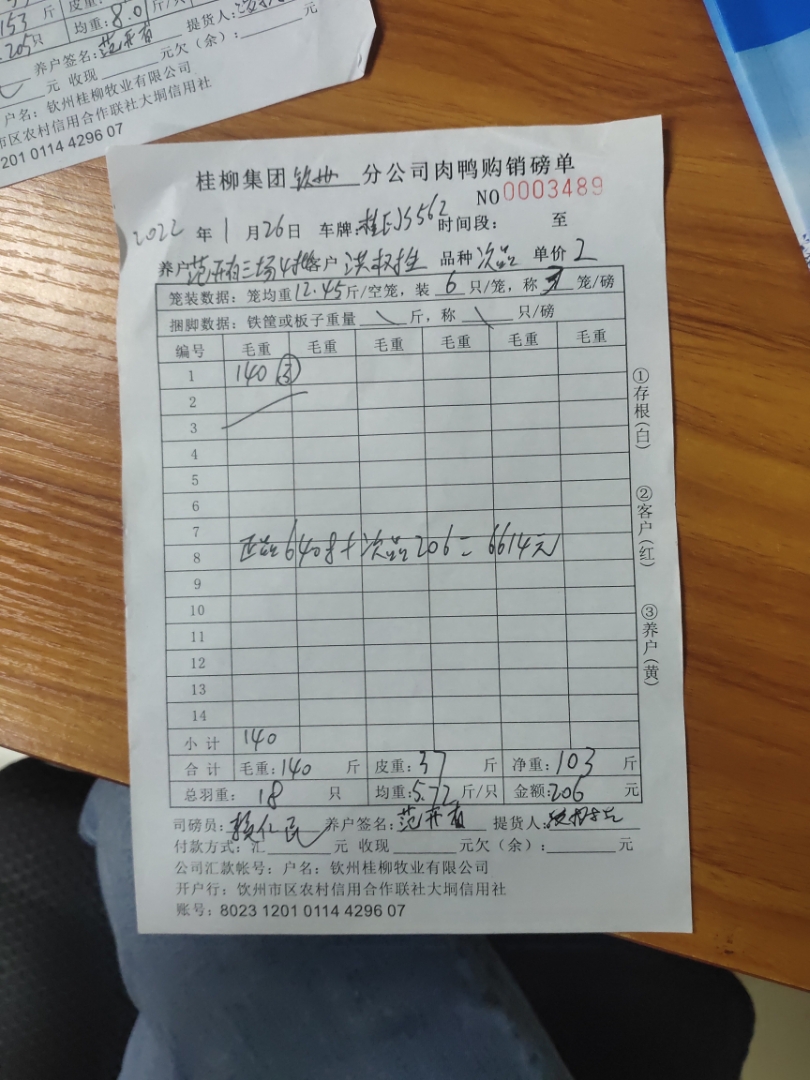 153 斤
均重: 8.0 斤/只
205只
提货人:
养户签名: 范开有
元 收现 元欠（余）: 元
户名: 钦州桂柳牧业有限公司
市区农村信用合作联社大垌信用社
201 0114 4296 07
桂柳集团 钦州 分公司肉鸭购销磅单
NO 0003489
2022 年 1 月 26 日 车牌: 562 时间段: 至
养户 范开有三场4批 客户 品种 次品 单价 2
笼装数据: 笼均重 12.45 斤/空笼，装 6 只/笼，称 3 笼/磅
捆脚数据: 铁筐或板子重量 \ 斤，称 \ 只/磅
编号 毛重 毛重 毛重 毛重 毛重 毛重
1 140 ③
2
3
4
5
6
7
8 正品6408+次品206=6614元
9
10
11
12
13
14
小计 140
合计 毛重: 140 斤 皮重: 37 斤 净重: 103 斤
总羽重: 18 只 均重: 5.72 斤/只 金额: 206 元
司磅员: 养户签名: 范开有 提货人:
付款方式: 汇 元 收现 元欠（余）: 元
公司汇款帐号: 户名: 钦州桂柳牧业有限公司
开户行: 钦州市区农村信用合作联社大垌信用社
账号: 8023 1201 0114 4296 07
①存根(白)
②客户(红)
③养户(黄)